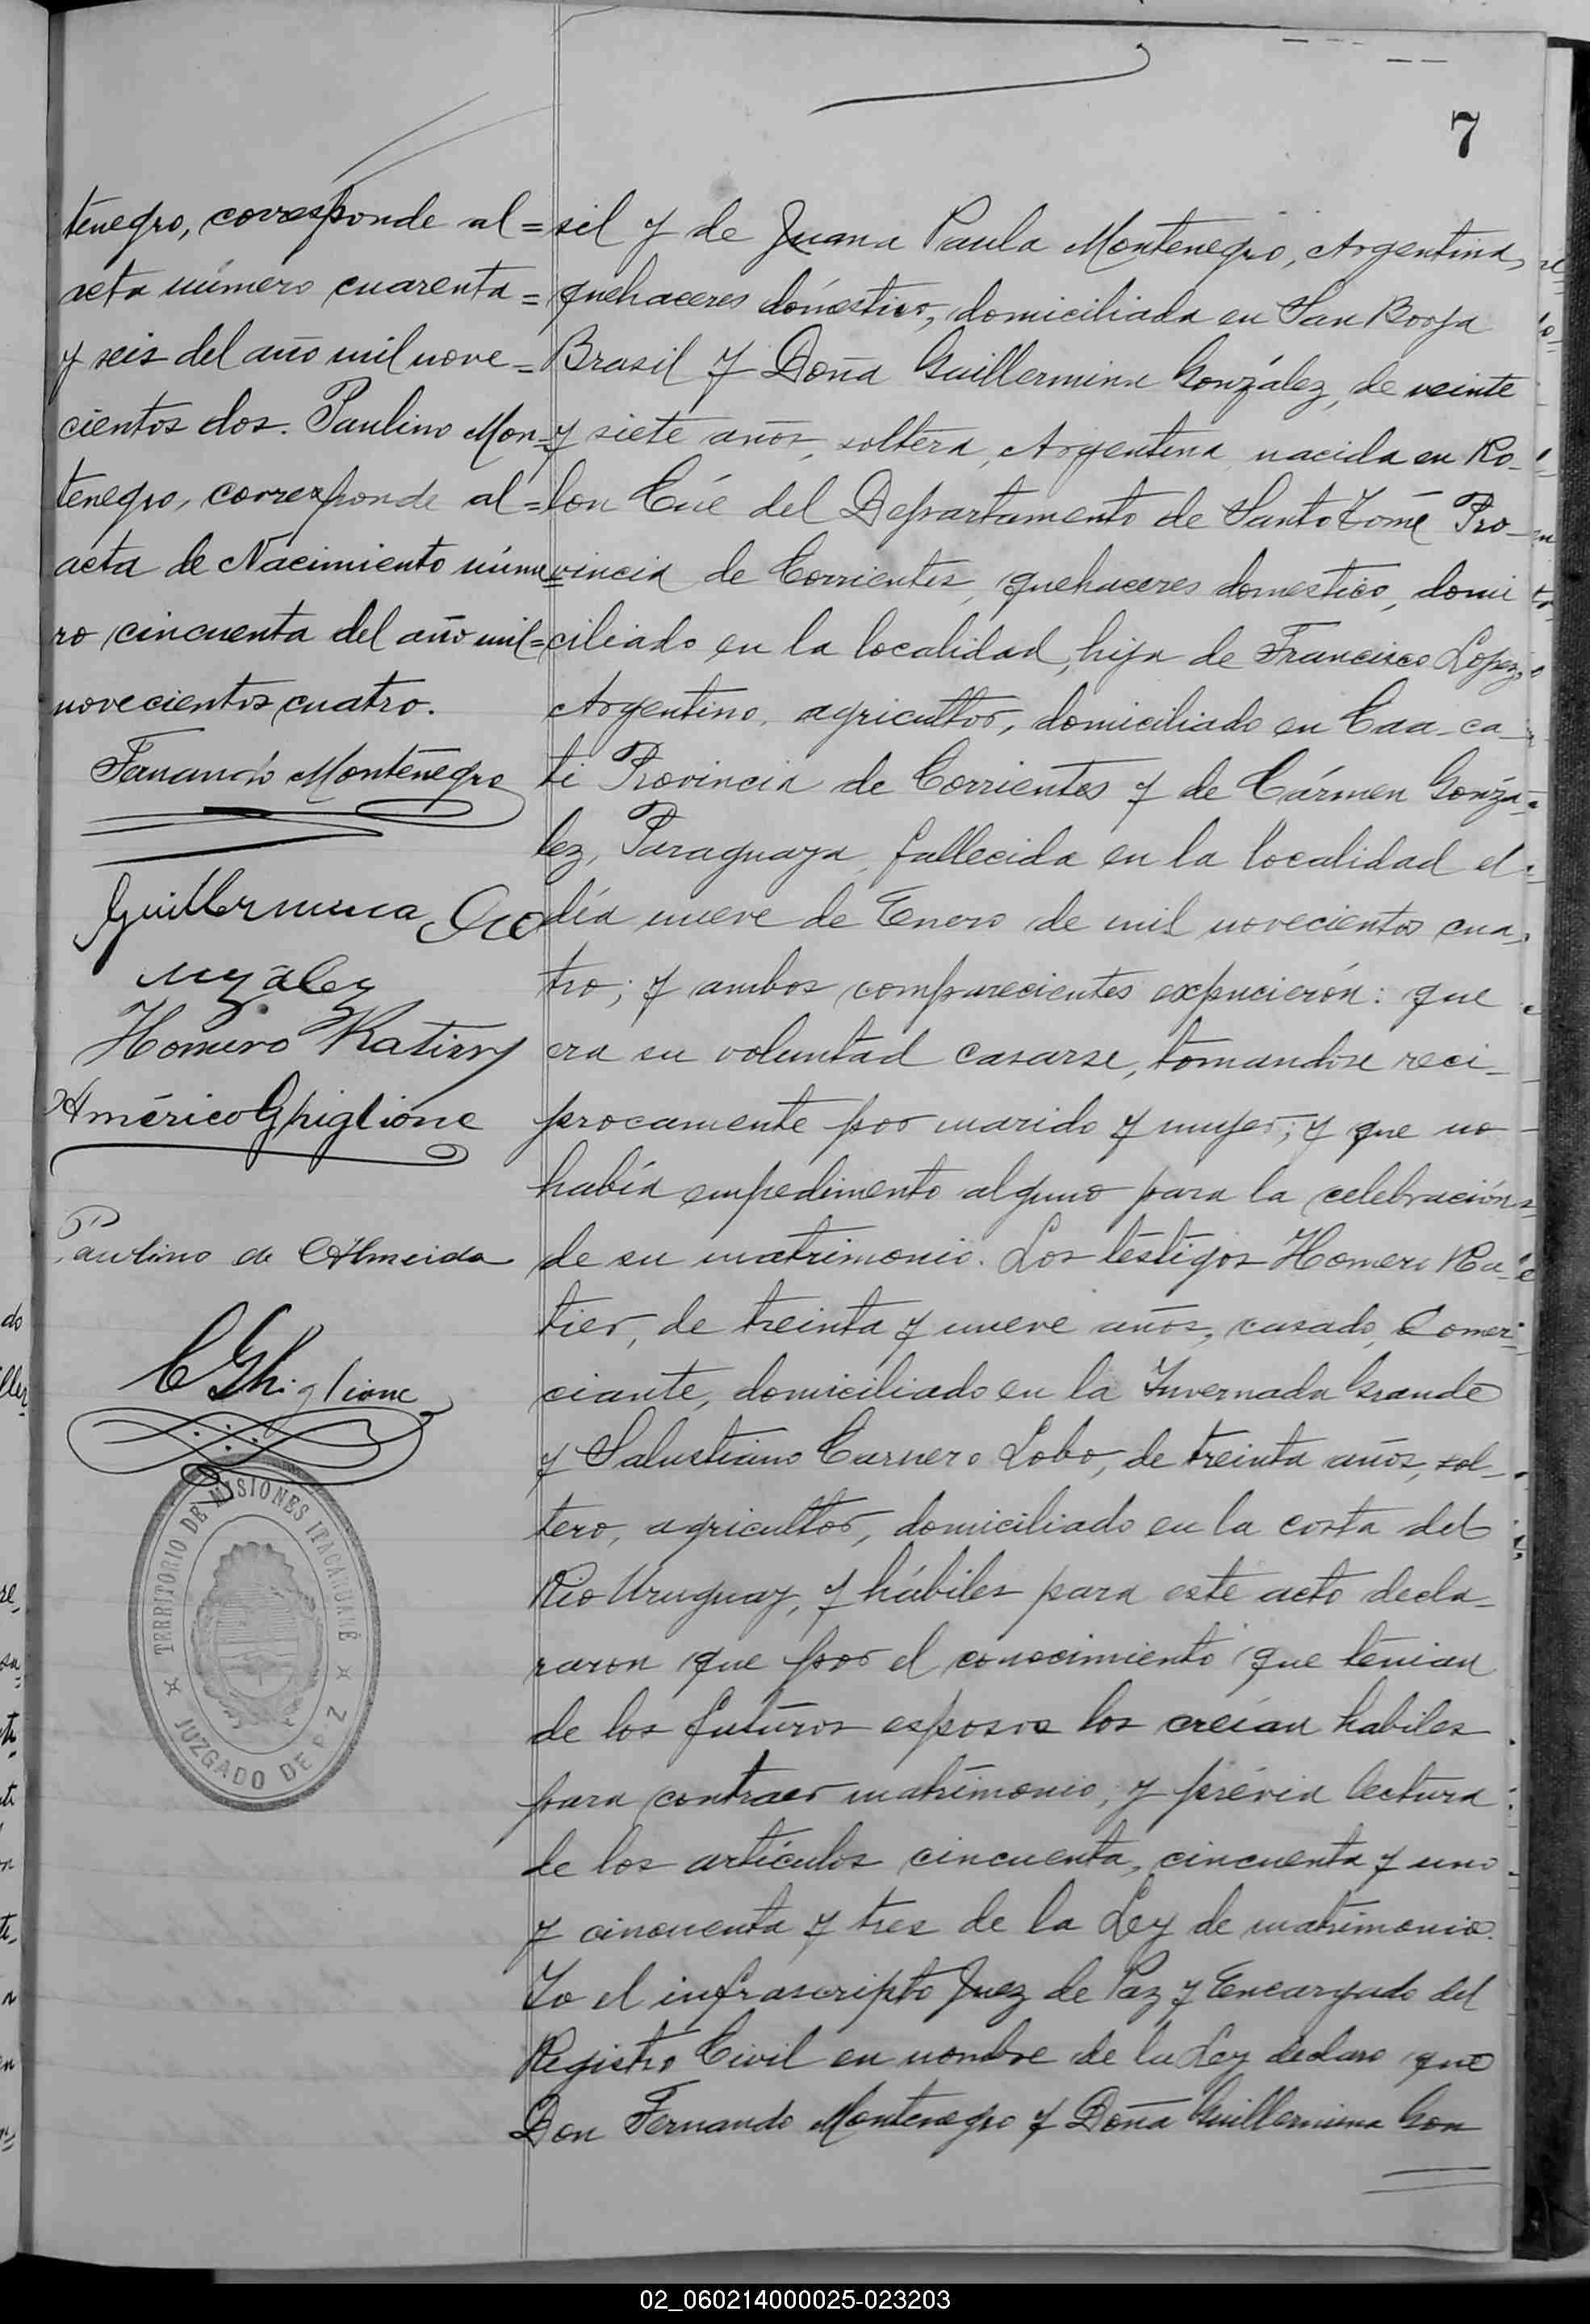 7
tenegro, corresponde al=
acta número cuarenta=
y seis del año mil nove=
cientos dos. Paulino Mon=
tenegro, corresponde al=
acta de Nacimiento núme=
ro cincuenta del año mil=
novecientos cuatro.
Fernando Montenegro
Guillermina Go
nzalez
Homero Ratier
Américo Ghiglione
Paulino de Almeida
C Ghiglione
TERRITORIO DE MISIONES ITACARUARÉ
JUZGADO DE PZ
sil y de Juana Paula Montenegro, Argentina,
quehaceres doméstico, domiciliada en San Borja
Brasil y Doña Guillermina González, de veinte
y siete años, soltera, Argentina nacida en Ro-
lon Cúe del Departamento de Santo Tomé Pro-
vincia de Corrientes, quehaceres domestico, domi
ciliado en la localidad, hija de Francisco Lopez,
Argentino, agricultor, domiciliado en Caa-ca-
ti Provincia de Corrientes y de Cármen Gonzá-
lez, Paraguaya, fallecida en la localidad el
día nueve de Enero de mil novecientos cua-
tro; y ambos comparecientes expucierón: que
era su voluntad casarse, tomandose reci-
procamente por marido y mujer; y que no
había empedimento alguno para la celebración
de su matrimonio. Los testigos Homero Ra-
tier, de treinta y nueve años, casado, Comer-
ciante, domiciliado en la Invernada Grande
y Salustiano Carnero Lobo, de treinta años, sol-
tero, agricultor, domiciliado en la costa del
Rio Uruguay, y hábiles para este acto decla-
raron que por el conocimiento que tenian
de los futuros esposos los creían habiles
para contraer matrimonio; y prévia lectura
de los artículos cincuenta, cincuenta y uno
y cincuenta y tres de la Ley de matrimonio.
Yo el infrascripto Juez de Paz y Encargado del
Registro Civil en nombre de la Ley declaro que
Don Fernando Montenegro y Doña Guillermina Gon
02_060214000025-023203